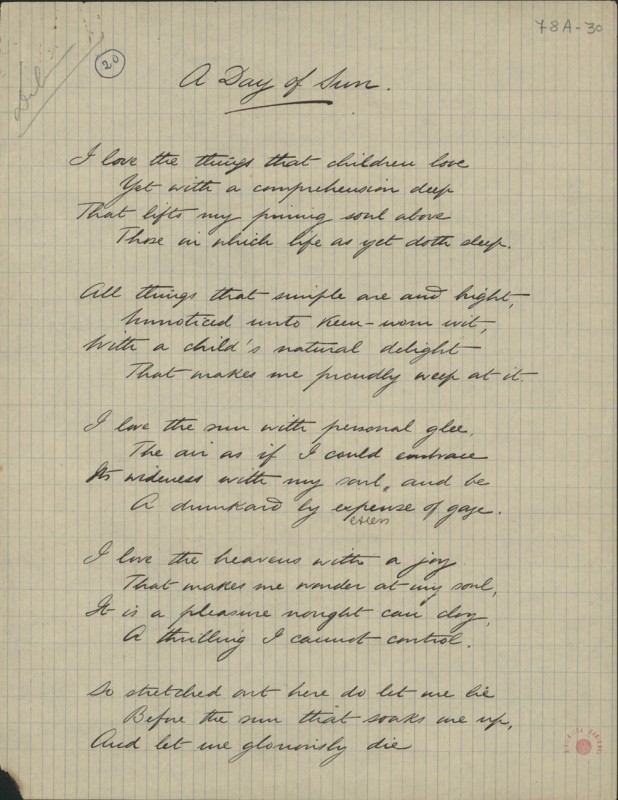 78A-30
20
A Day of Sun.
I love the things that children love
Yet with a comprehension deep
That lifts my pining soul above
Those in which life as yet doth sleep.
All things that simple are and bright,
Unnoticed unto keen-worn wit,
With a child's natural delight
That makes me proudly weep at it.
I love the sun with personal glee,
The air as if I could embrace
Its wideness with my soul, and be
A drunkard by expense of gaze.
excess
I love the heavens with a joy
That makes me wonder at my soul,
It is a pleasure nought can cloy,
A thrilling I cannot control.
So stretched out here do let me lie
Before the sun that soaks me up,
And let me gloriously die